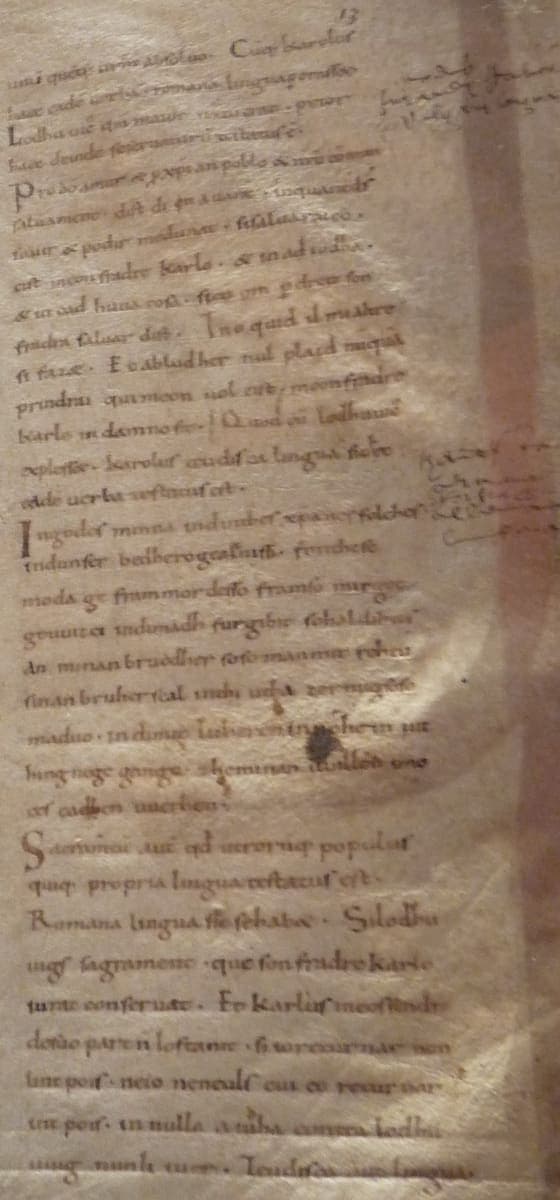 13
haec eadē uerba romana lingua perorasset
Lodhuuic qm̄ maior natu erat prior
haec deinde se seruaturū testatus ē
Pro dō amur & p xp̄ian poblo & nrō cōmun
saluament · dist di en auant · inquantdš
sauir & podir medunat · sisaluaraieo ·
cist meon fradre Karlo · & in adiudha ·
& in cad huna cosa · sicū om p dreit son
fradra saluar dist · Ino quid il mialtre
si faz& · Et abludher nul plaid nūquā
prindrai qui meon uol cist meon fradre
Karle in damno sit · Quod cū lodhuuic̄
explesset · Karolus teudisca lingua sic hec
eadē uerba testatus est ·
Ingodes minna indinthes xp̄anes folches
indunser bedhero gealtnissi · fonthese
moda ge frammordesso framso mirgot
geuuizci indimadh furgibit sohaldihtes
an minan bruodher soso man mit rehtu
sinan bruher scal inthi utha zermigsoso
maduo · indimit luheren in nohe in iut
hing nege gango · zheminan uuillon imo
ces cadhen uuerhen ·
Sacramentū autē qd̄ utrorūq populus
quiq propria lingua testatus est ·
Romana lingua sic se habet · Silodhu
uigs sagrament · que son fradre Karlo
iurat conseruat · Et Karlus meossendr
desuo part n̄ lostanit · si ioreturnar non
lint pois · neio neneuls cui eo returnar
int pois · in nulla aiudha contra lodhu
uuig nunli iuer · Teudisca autē lingua ·